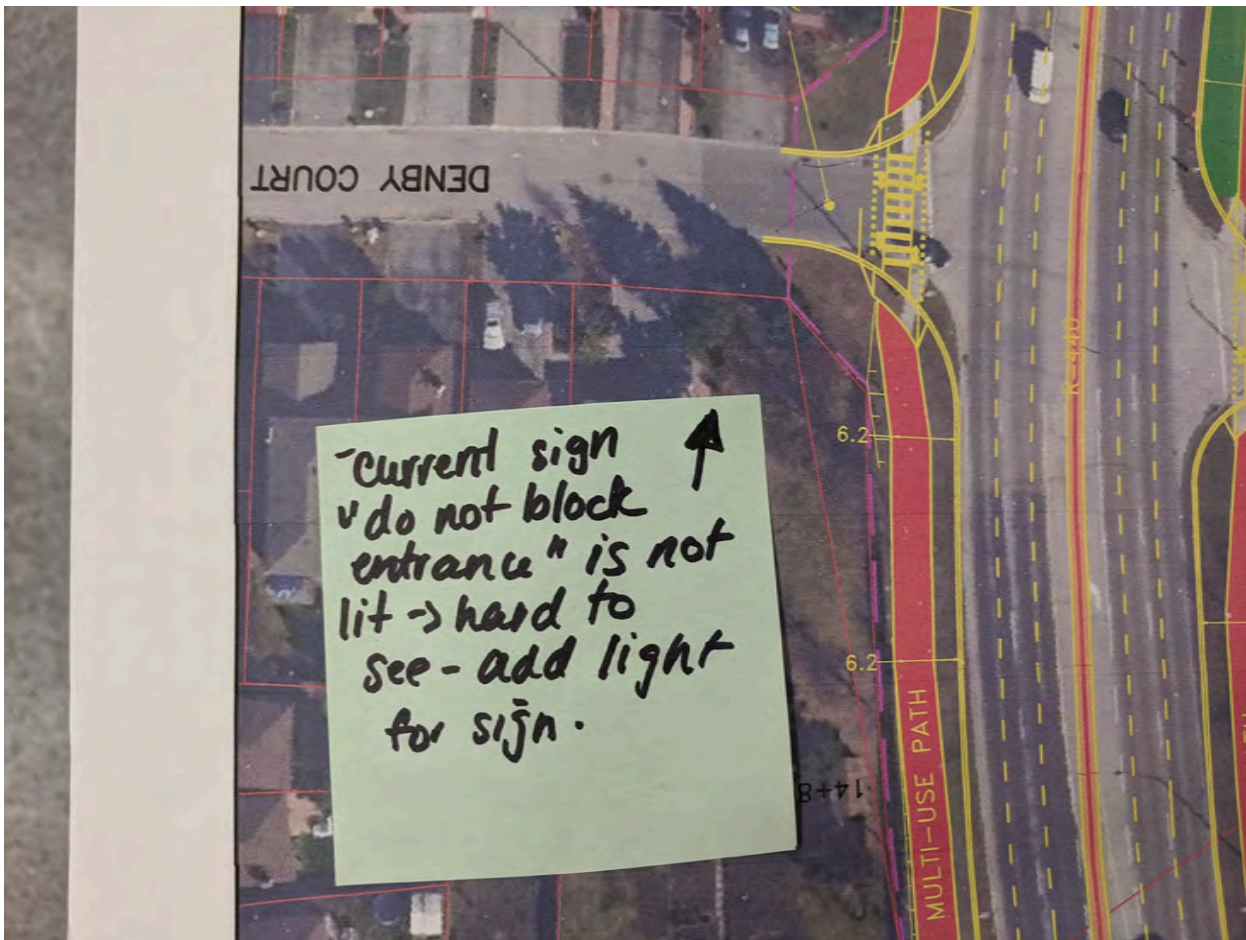 DENBY COURT
-current sign
"do not block
entrance" is not
lit -> hard to
see - add light
for sign.
6.2
6.2
MULTI-USE PATH